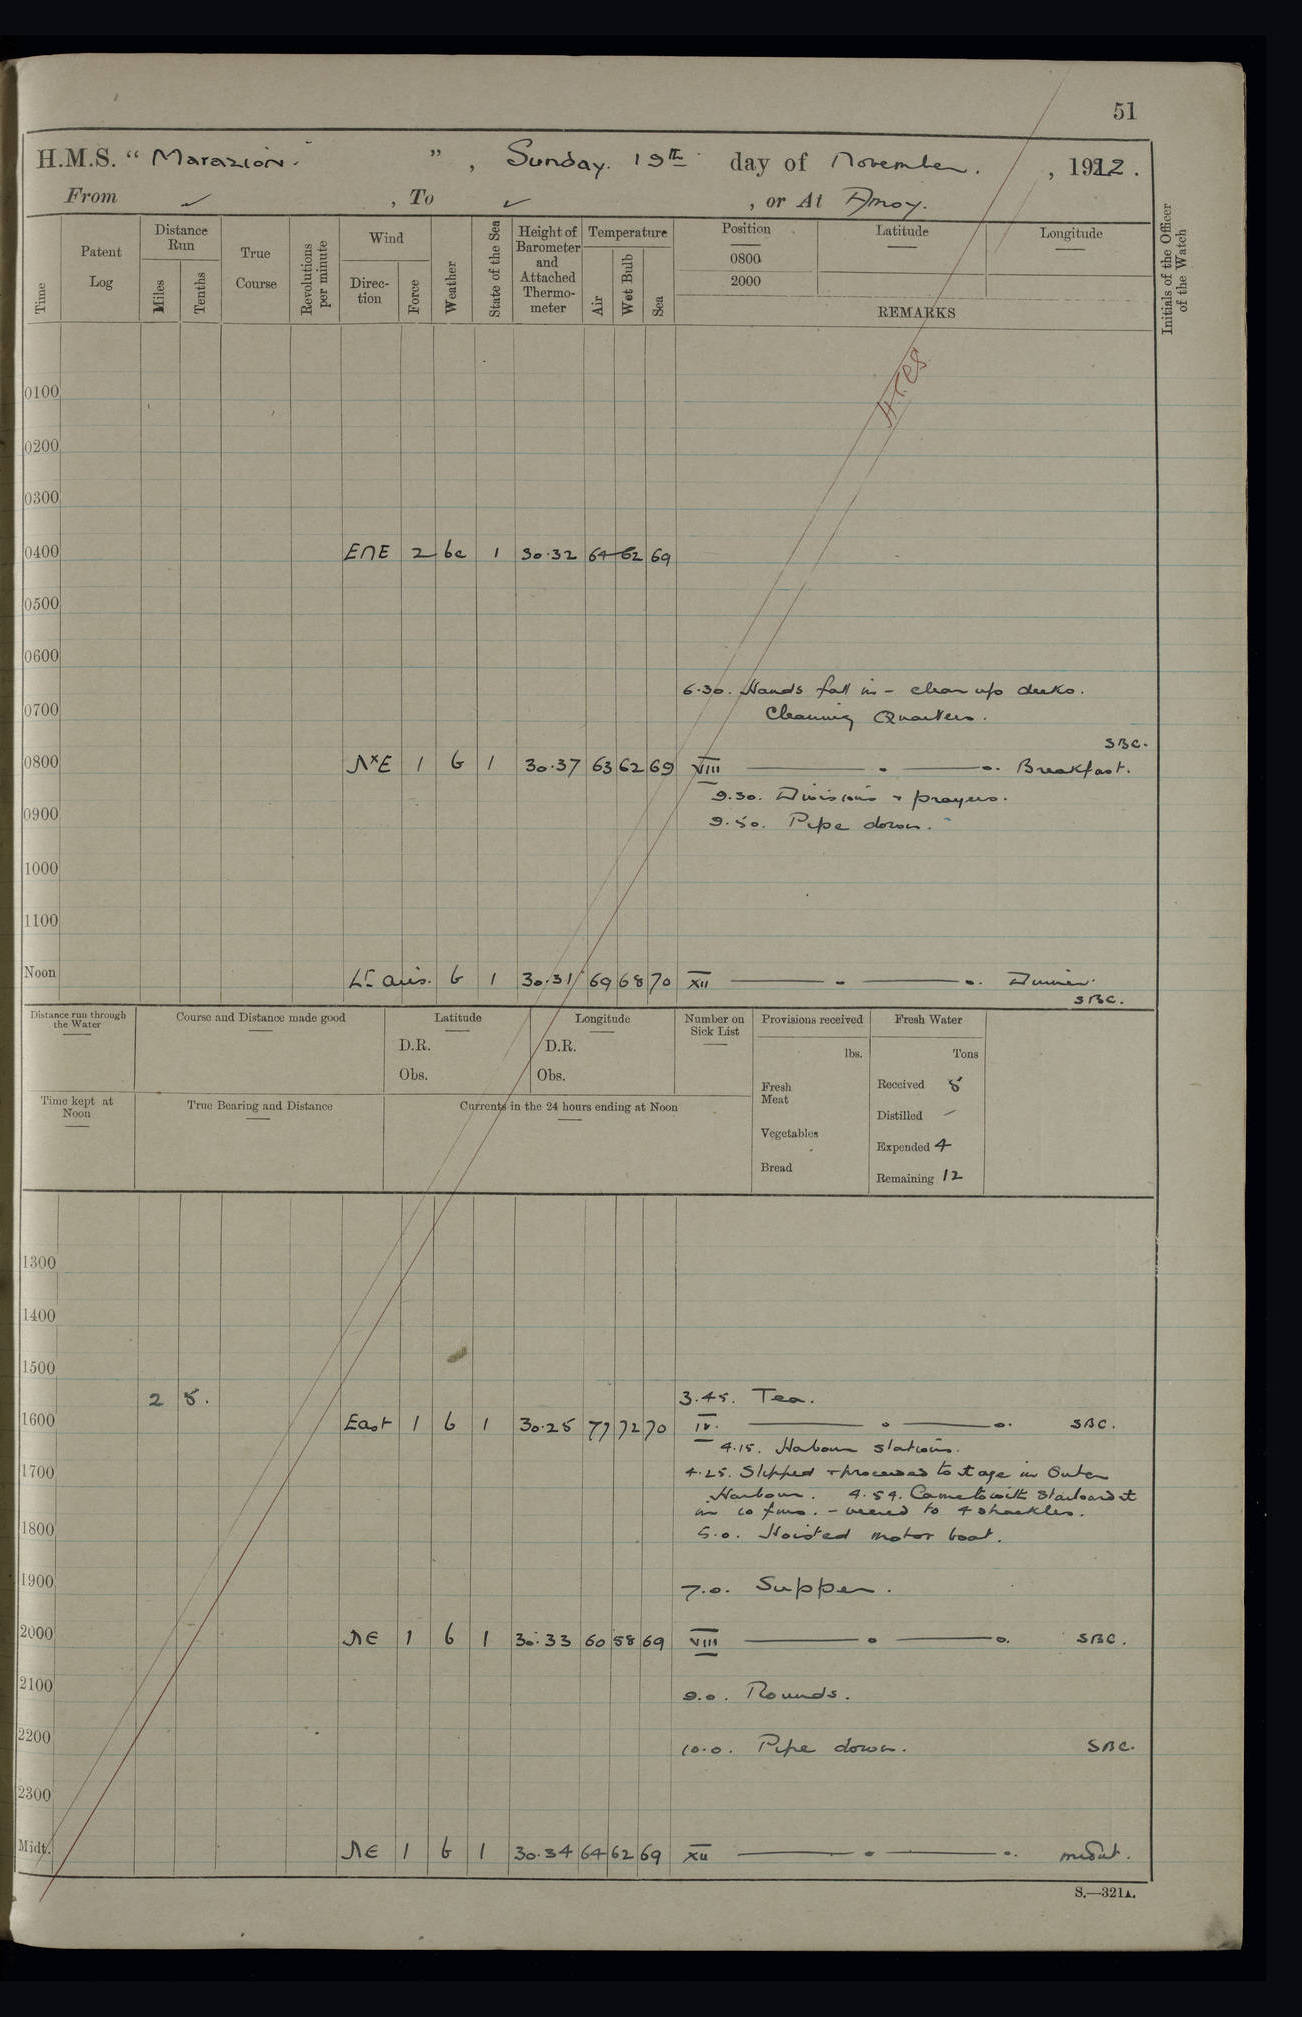 51
H.M.S. “ Marazion. ” , Sunday. 19th day of November. , 1922.
From ✓ , To ✓ , or At Amoy.
Time
Patent Log
Distance Run
Miles
Tenths
True Course
Revolutions per minute
Wind
Direction
Force
Weather
State of the Sea
Height of Barometer and Attached Thermometer
Temperature
Air
Wet Bulb
Sea
Position
0800
2000
Latitude
Longitude
REMARKS
Initials of the Officer of the Watch
0100
0200
0300
0400 ENE 2 bc 1 30.32 64 62 69
0500
0600
6.30. Hands fall in - clean up decks.
0700 Cleaning Quarters.
SBC.
0800 N×E 1 b 1 30.37 63 62 69 VIII Breakfast.
9.30. Divisions + prayers.
0900 9.50. Pipe down.
1000
1100
Noon Lt airs. b 1 30.31 69 68 70 XII Dinner.
SBC.
Distance run through the Water
Course and Distance made good
Latitude
D.R.
Obs.
Longitude
D.R.
Obs.
Number on Sick List
Provisions received
lbs.
Fresh Meat
Vegetables
Bread
Fresh Water
Tons
Received 8
Distilled –
Expended 4
Remaining 12
Time kept at Noon
True Bearing and Distance
Currents in the 24 hours ending at Noon
1300
1400
1500
2 5. 3.45. Tea.
1600 East 1 b 1 30.25 77 72 70 IV. SBC.
4.15. Harbour stations.
1700 4.25. Slipped + proceeded to in Outer
Harbour. 4.54. Came to with Starboard
in 10 fms. - veered to 4 shackles.
1800 5.0. Hoisted motor boat.
1900 7.0. Supper.
2000 NE 1 b 1 30.33 60 58 69 VIII SBC.
2100 9.0. Rounds.
2200 10.0. Pipe down. SBC.
2300
Midt. NE 1 b 1 30.34 64 62 69 XII
S.—321A.